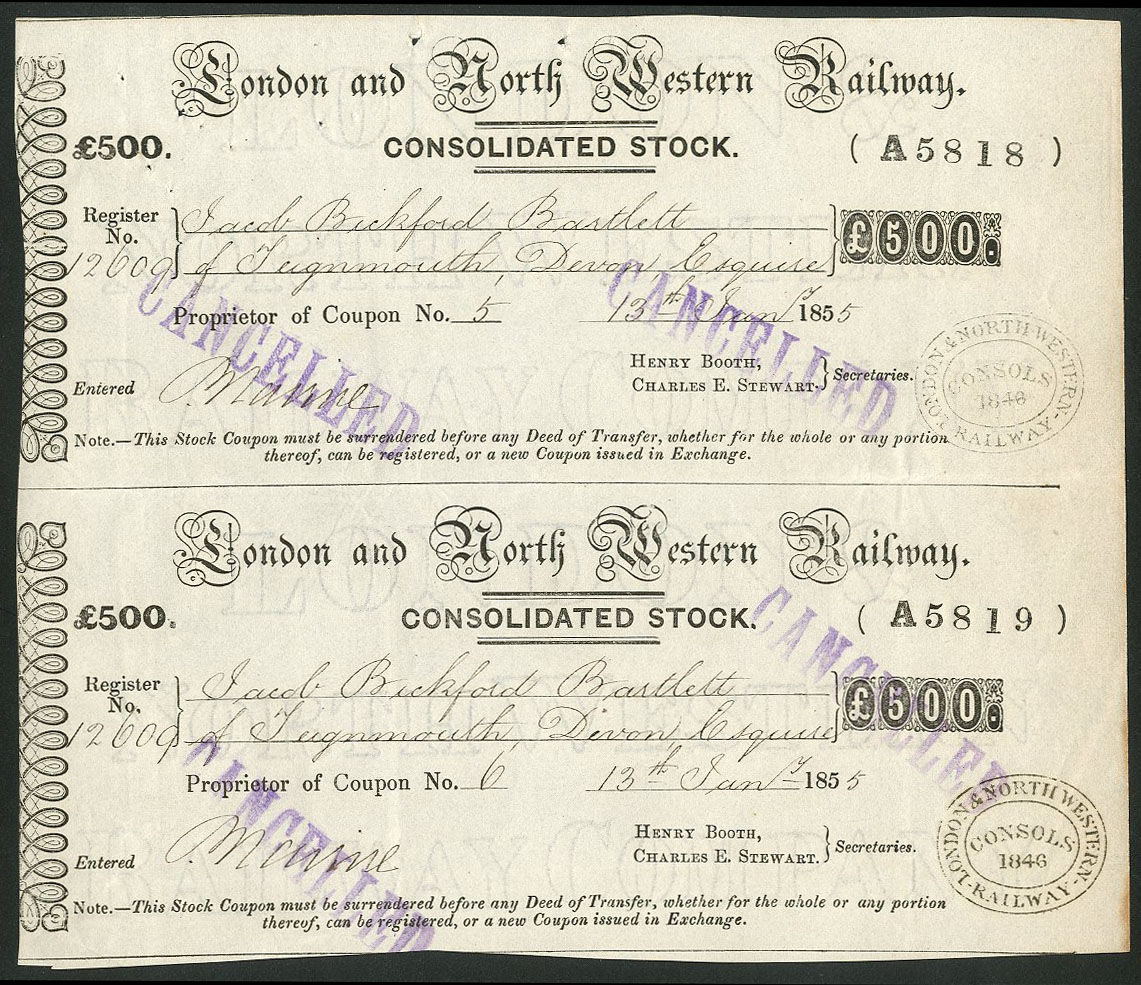 London and North Western Railway.
£500. CONSOLIDATED STOCK. (A5818)
Register No. 12609 } Jacob Bickford Bartlett
of Teignmouth, Devon, Esquire } £500.
Proprietor of Coupon No. 5 13th Jany 1855
CANCELLED CANCELLED
HENRY BOOTH,
CHARLES E. STEWART. } Secretaries.
Entered
LONDON & NORTH WESTERN RAILWAY
CONSOLS
1846
Note.—This Stock Coupon must be surrendered before any Deed of Transfer, whether for the whole or any portion
thereof, can be registered, or a new Coupon issued in Exchange.
London and North Western Railway.
£500. CONSOLIDATED STOCK. (A5819)
Register No. 12609 } Jacob Bickford Bartlett
of Teignmouth, Devon, Esquire } £500.
Proprietor of Coupon No. 6 13th Jany 1855
CANCELLED CANCELLED
HENRY BOOTH,
CHARLES E. STEWART. } Secretaries.
Entered
LONDON & NORTH WESTERN RAILWAY
CONSOLS
1846
Note.—This Stock Coupon must be surrendered before any Deed of Transfer, whether for the whole or any portion
thereof, can be registered, or a new Coupon issued in Exchange.